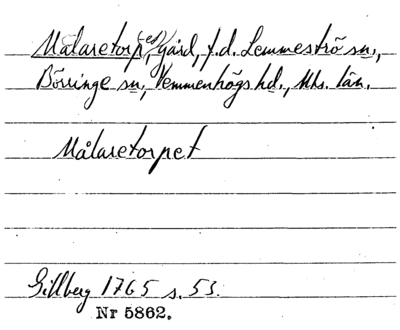 Målaretorp(-et), gård, f.d. Lemmeströ sn.,
Börringe sn, Vemmenhögs hd., Mhs. län.
Målaretorpet
Gillberg 1765 s. 53.
Nr 5862.